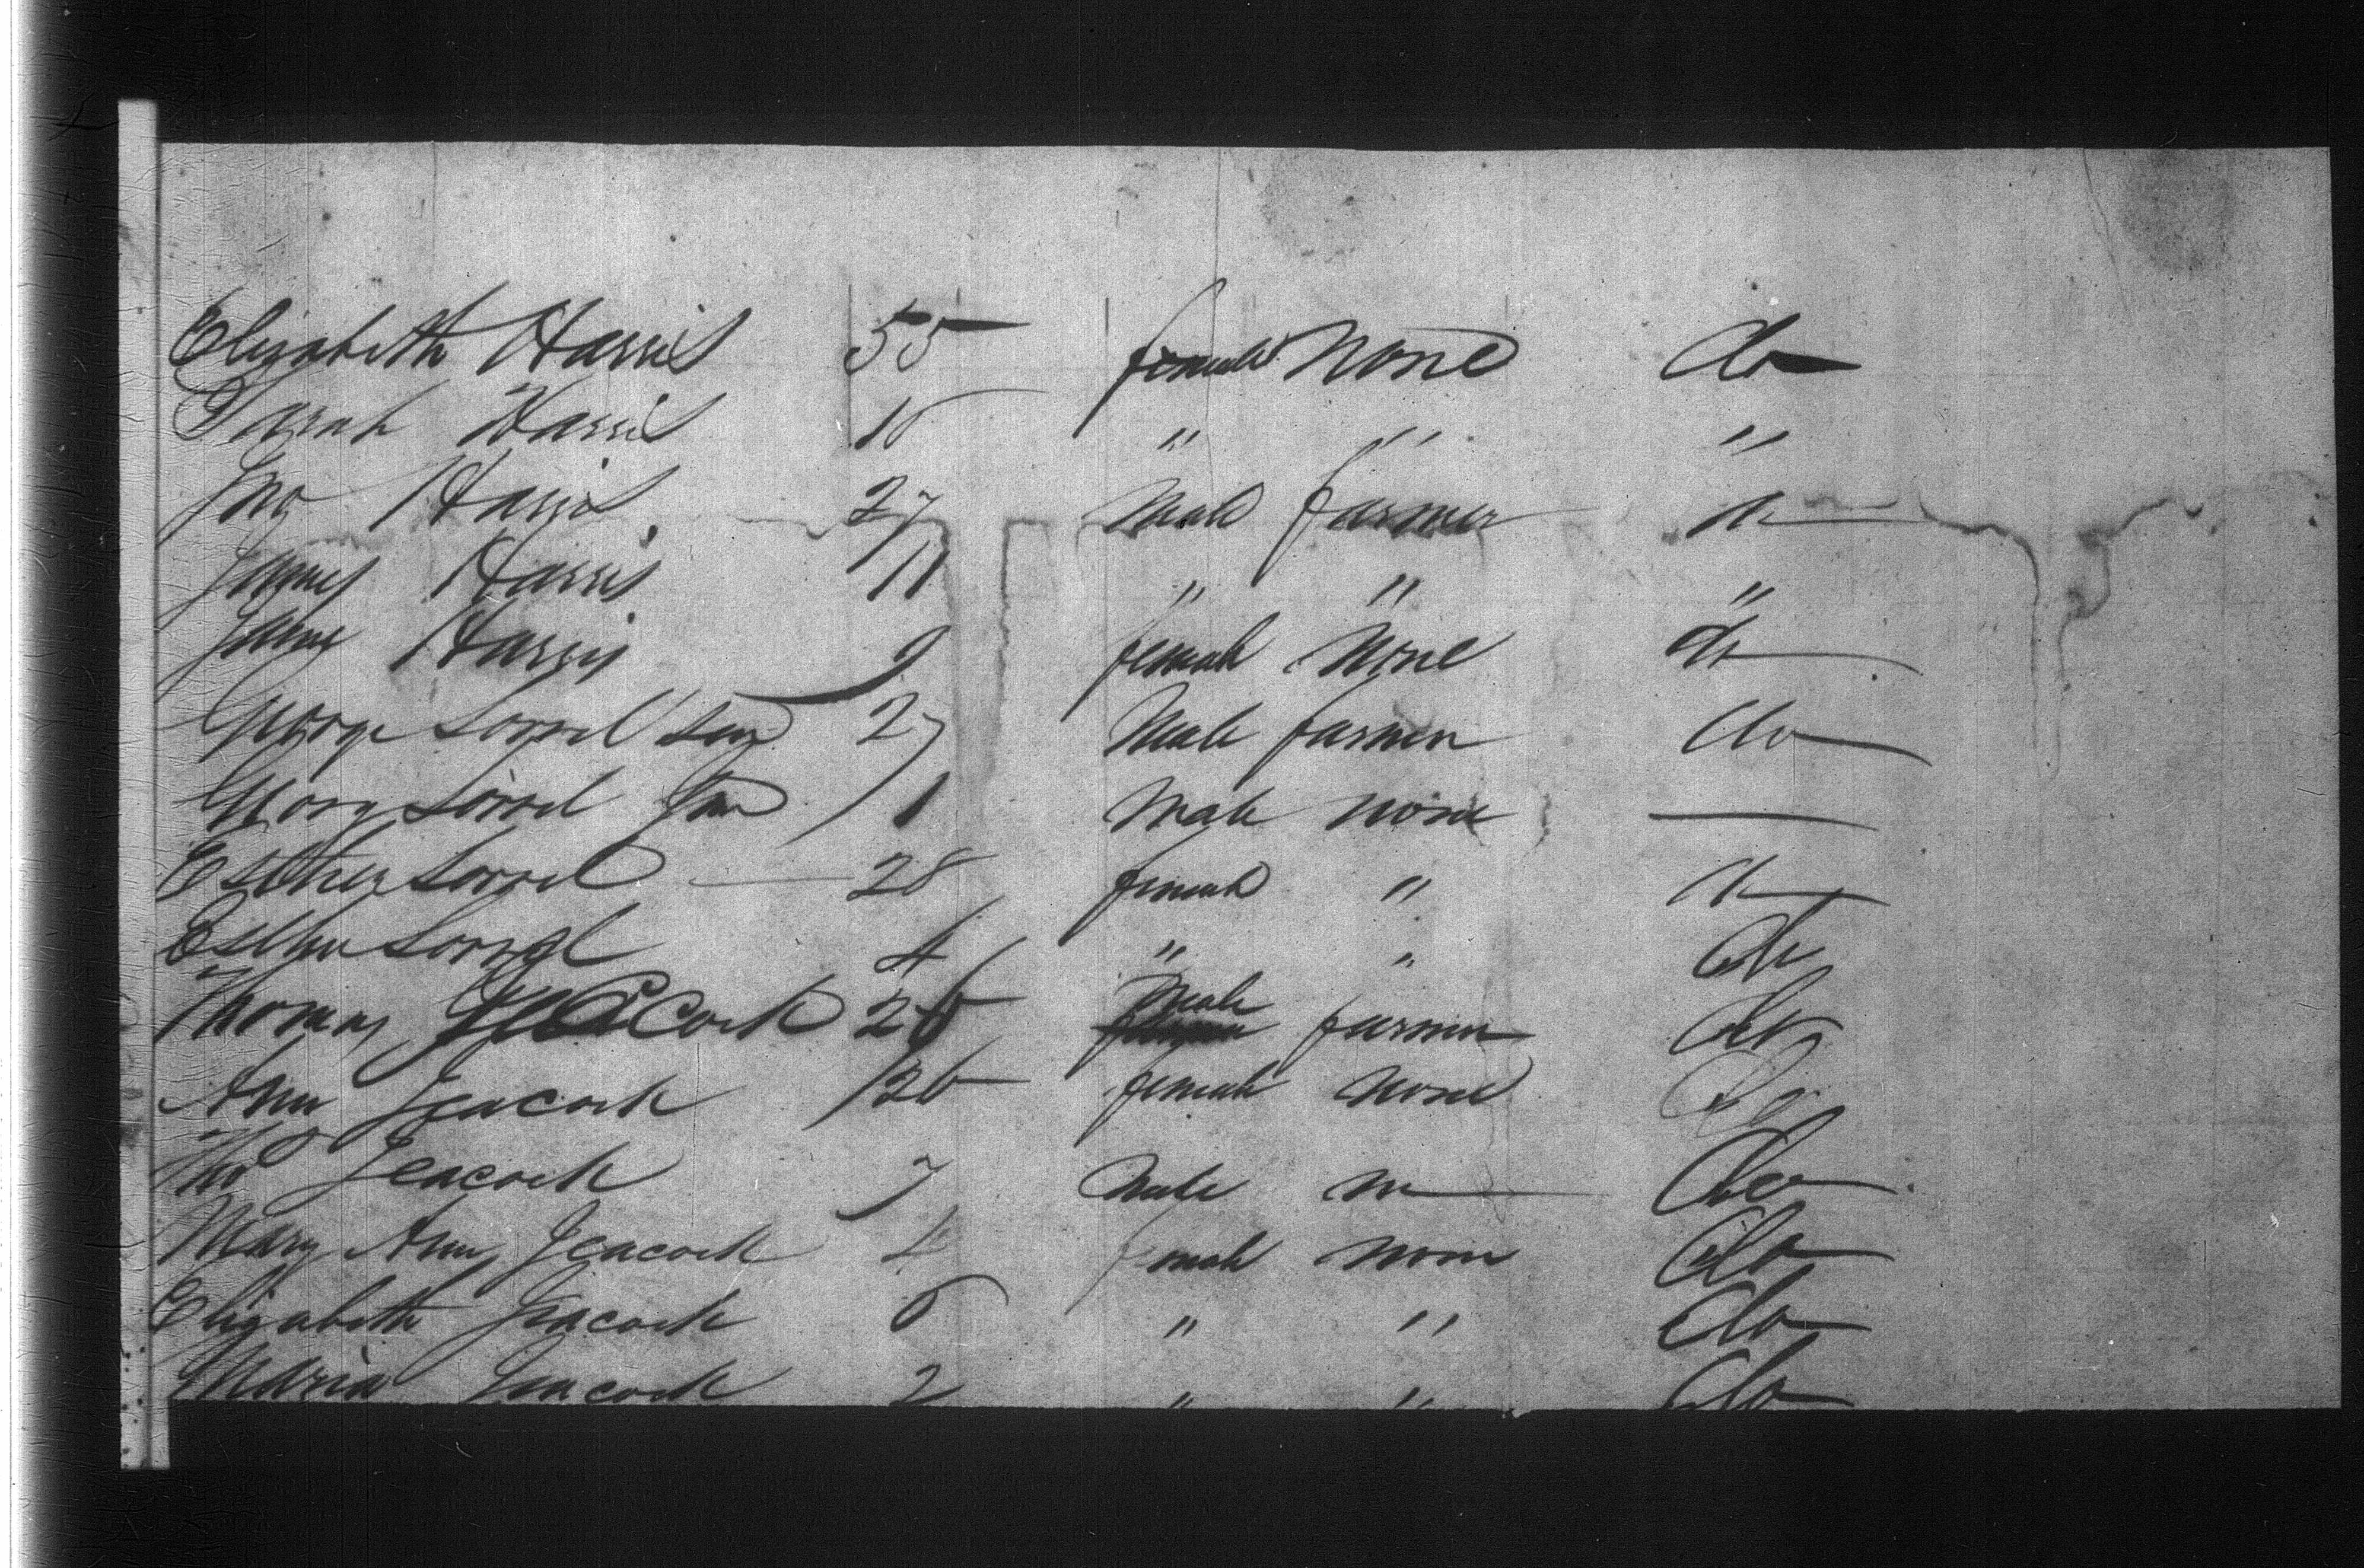 Elizabeth Harris 55 female None do
Sarah Harris 15 " " "
Jno Harris 27 Male farmer do
James Harris 11 " " "
Jane Harris 9 female None do
George Sorrel Sen 27 Male farmer do
George Sorrel Jun 1 Male none —
Esther Sorrel — 28 female " do
Esther Sorrel 4 " " do
Thomas Jeacock 26 Male farmer do
Ann Jeacock 26 female none do
Tho Jeacock 7 Male do
Mary Ann Jeacock 4 female none do
Elizabeth Jeacock 6 " " do
Maria Jeacock 2 " " do